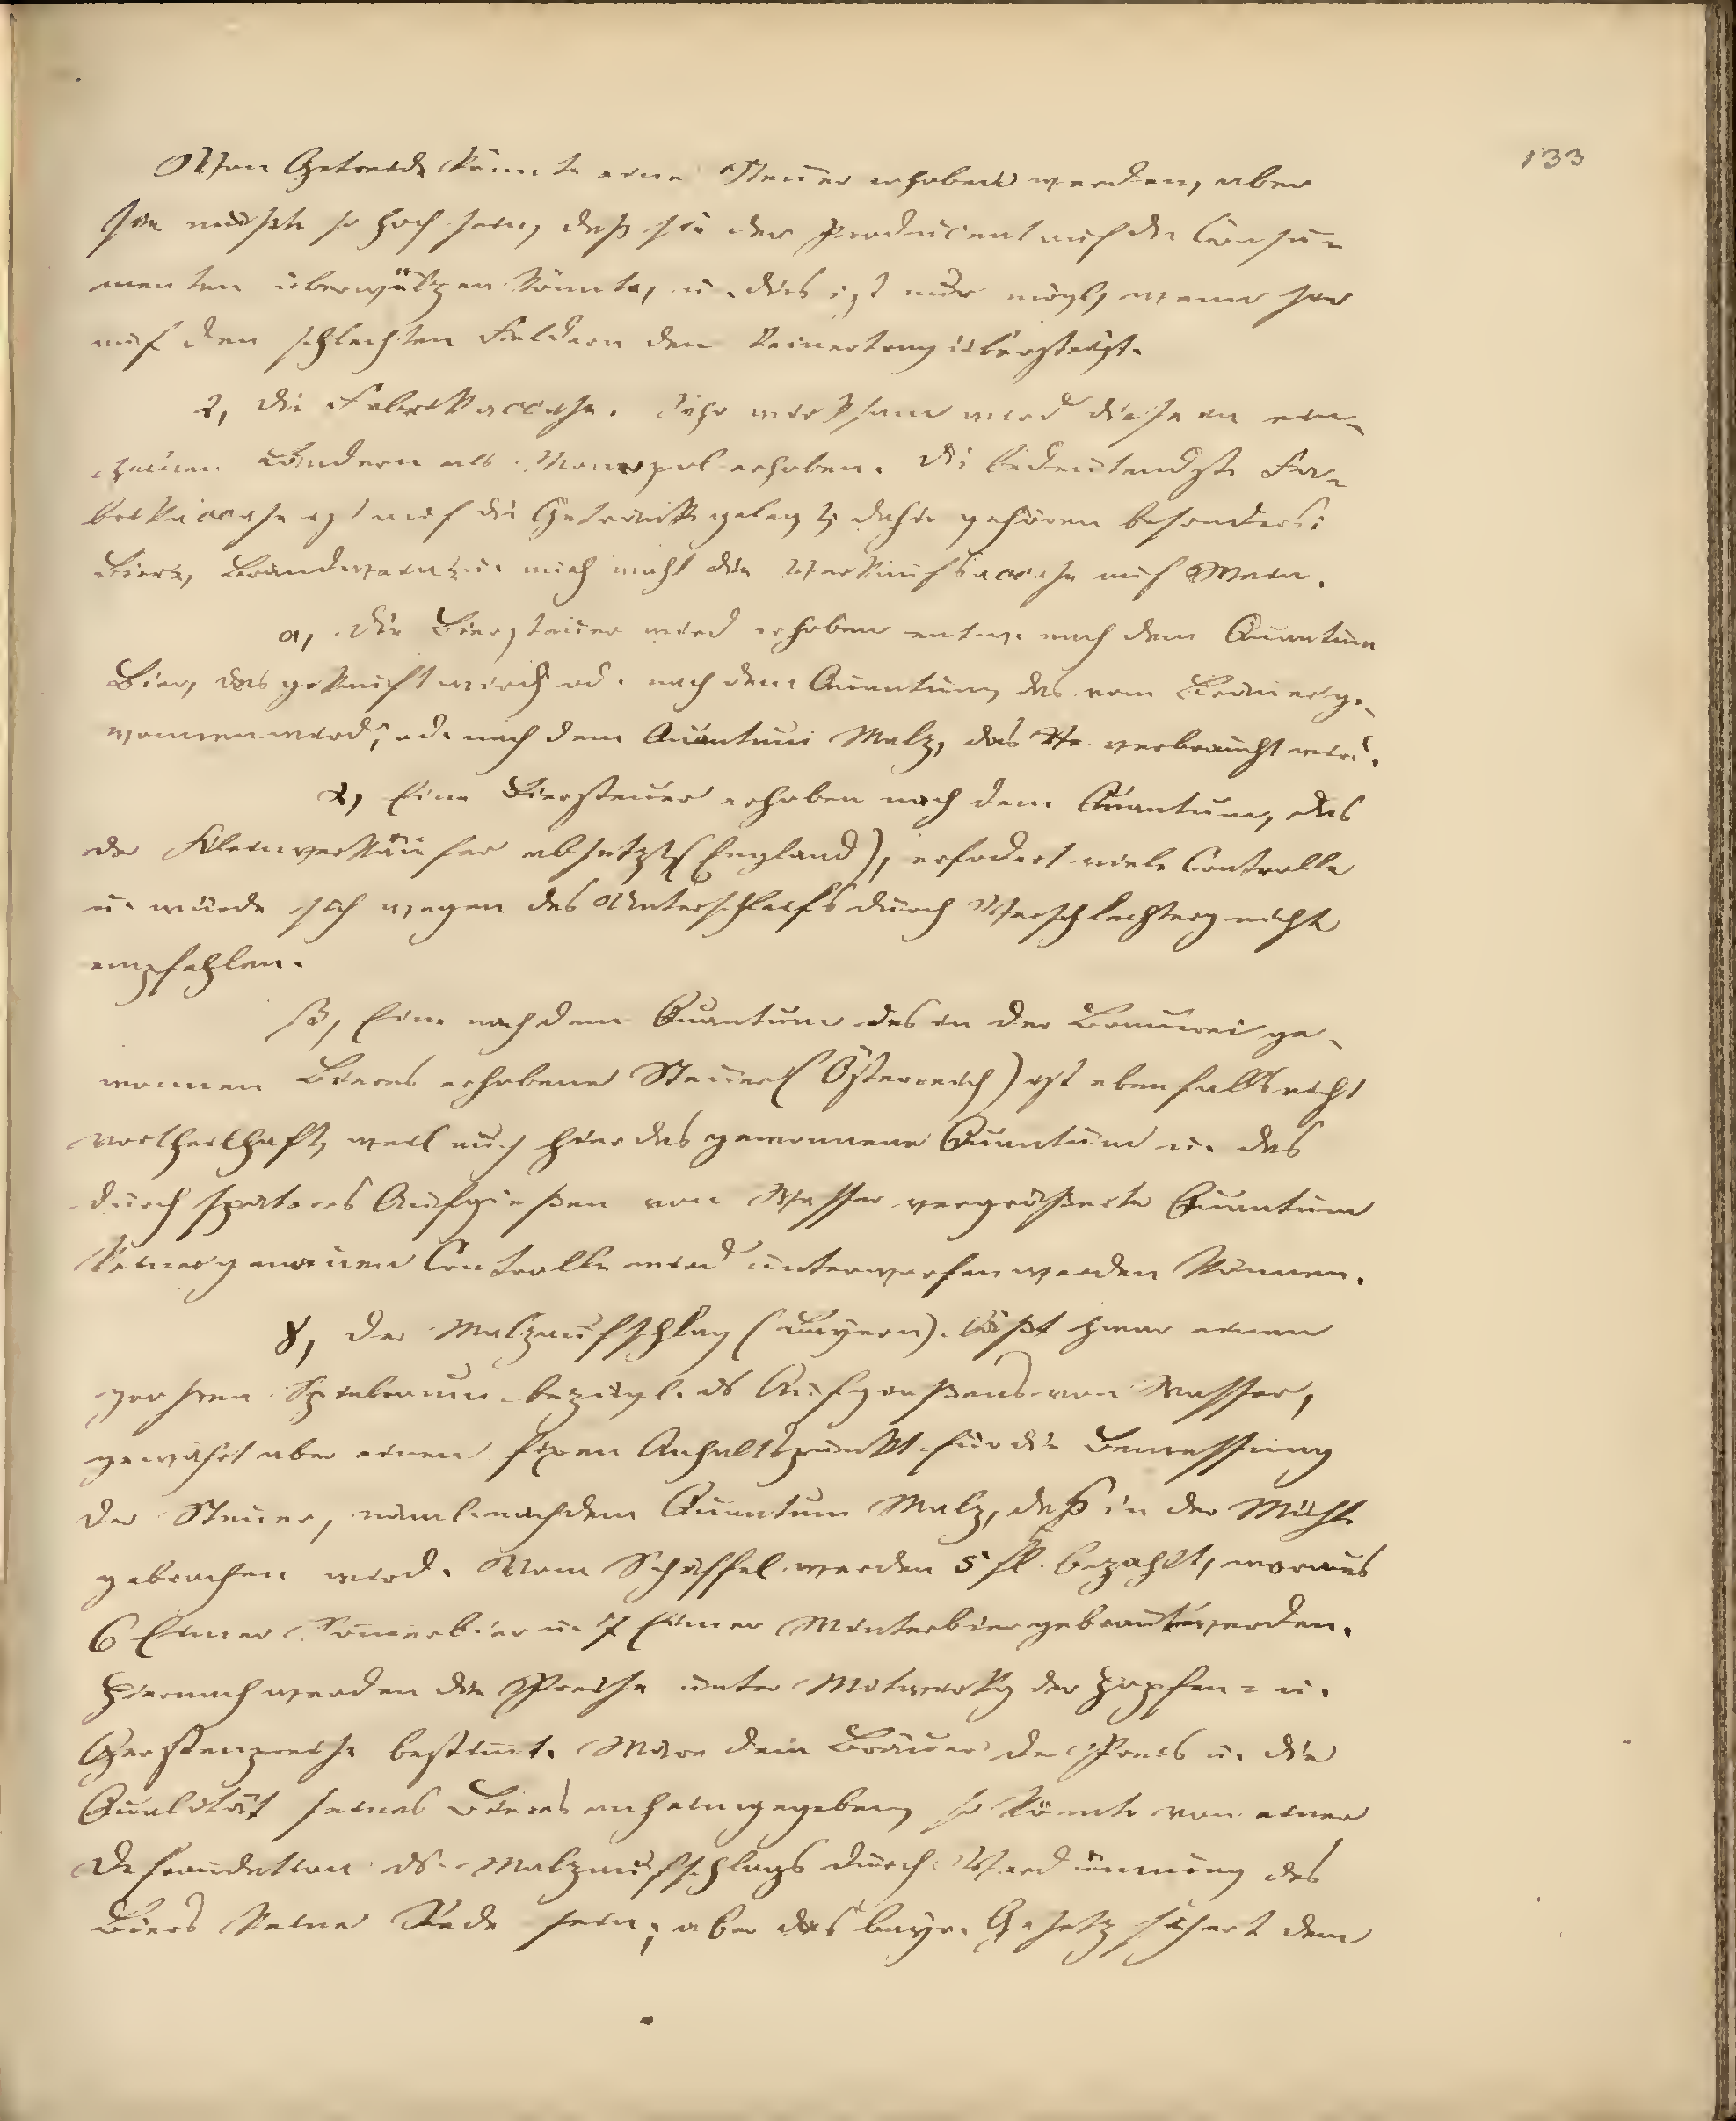 133
Von Getreide könnte eine Steuer erhoben werden, aber
sie müßte so hoch sein, daß sie der Producent auf die Consu-
menten überwälzen könnte, u. dies ist nur mögl., wenn sie
auf den schlechten Feldern den Reinertrag übersteigt.
2, Die Fabrikaccise. Sehr wirksam wird diese in ein-
zelnen Ländern als Monopol erhoben. Die bedeutendste Fa-
brikaccise ist auf die Getränke gelegt; dahin gehören besonders:
Bier, Brandwein, u. auch die Verkaufsaccise auf Wein.
a, Die Biersteuer wird erhoben entw. nach dem Quantum
Bier, das gekauft wird, od. nach dem Quantum, das vom Brauer ge-
wonnen wird, od. nach dem Quantum Malz, das verbraucht wird.
α, Eine Biersteuer erhoben nach dem Quantum, das
der Kleinverkäufer absetzt (England), erfodert viele Controlle
u. würde sich wegen des Unterschleifs durch Verschlechterg nicht
empfehlen.
β, Eine nach dem Quantum des in der Brauerei ge-
wonnen Bieres erhobene Steuer (Österreich) ist ebenfalls nicht
vortheilhaft, weil auch hier das gewonnene Quantum u. das
durch späteres Aufgießen von Wasser vergrößerte Quantum
keiner genauen Controlle wird unterworfen werden können.
γ, Der Malzaufschlag (Bayern). läßt zwar einen
großen Spielraum bezügl. ds Aufgießens von Wasser,
gewährt aber einen fixen Anhaltspunkt für die Bemessung
der Steuer, näml. nach dem Quantum Malz, daß in der Mühle
gebrochen wird. Vom Schäffel werden 5 fl. bezahlt, woraus
6 Eimer Somerbier u. 7 Eimer Winterbier gebraut werden.
Hiernach werden die Preise unter Mitwirkg der Hopfen- u.
Gerstenpreise bestimt. Wäre dem Brauer der Preis u. die
Qualität seines Bieres anheimgegeben, so könnte von einer
Defraudation ds Malzaufschlags durch Verdünnung des
Biers keine Rede sein; aber das bayr. Gesetz sichert dem